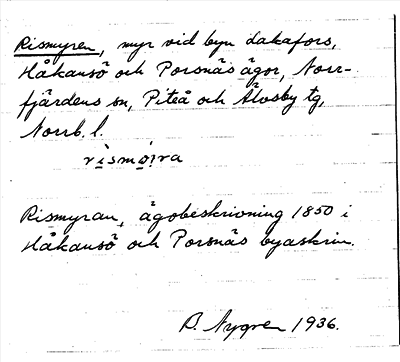 Rismyren, myr vid byn Lakafors,
Håkansö och Porsnäs ägor, Norr-
fjärdens sn, Piteå och Älvsby tg,
Norrb. l.
rismo̤i̯ra
Rismyran, ägobeskrivning 1850 i
Håkansö och Porsnäs byaskrin.
B. Nygren 1936.